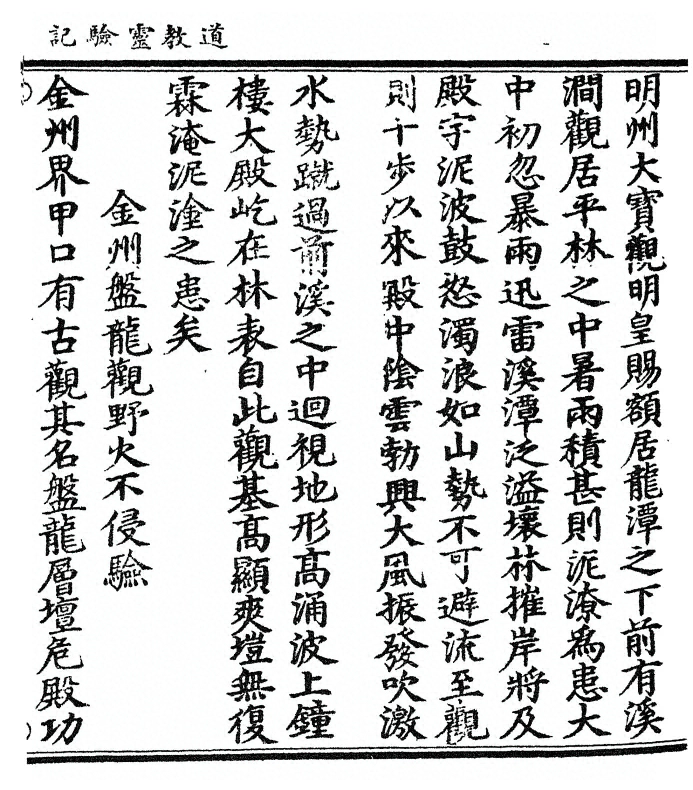 道教靈驗記
明州大寶觀明皇賜額居龍潭之下前有溪
澗觀居平林之中暑雨積甚則泥潦為患大
中初忽暴雨迅雷溪潭泛溢壞林摧岸將及
殿宇泥波鼓怒濁浪如山勢不可避流至觀
則十步以來殿中陰雲勃興大風振發吹激
水勢蹴過前溪之中迴視地形高涌波上鐘
樓大殿屹在林表自此觀基高顯爽塏無復
霖淹泥塗之患矣
金州盤龍觀野火不侵驗
金州界甲口有古觀其名盤龍層壇危殿功